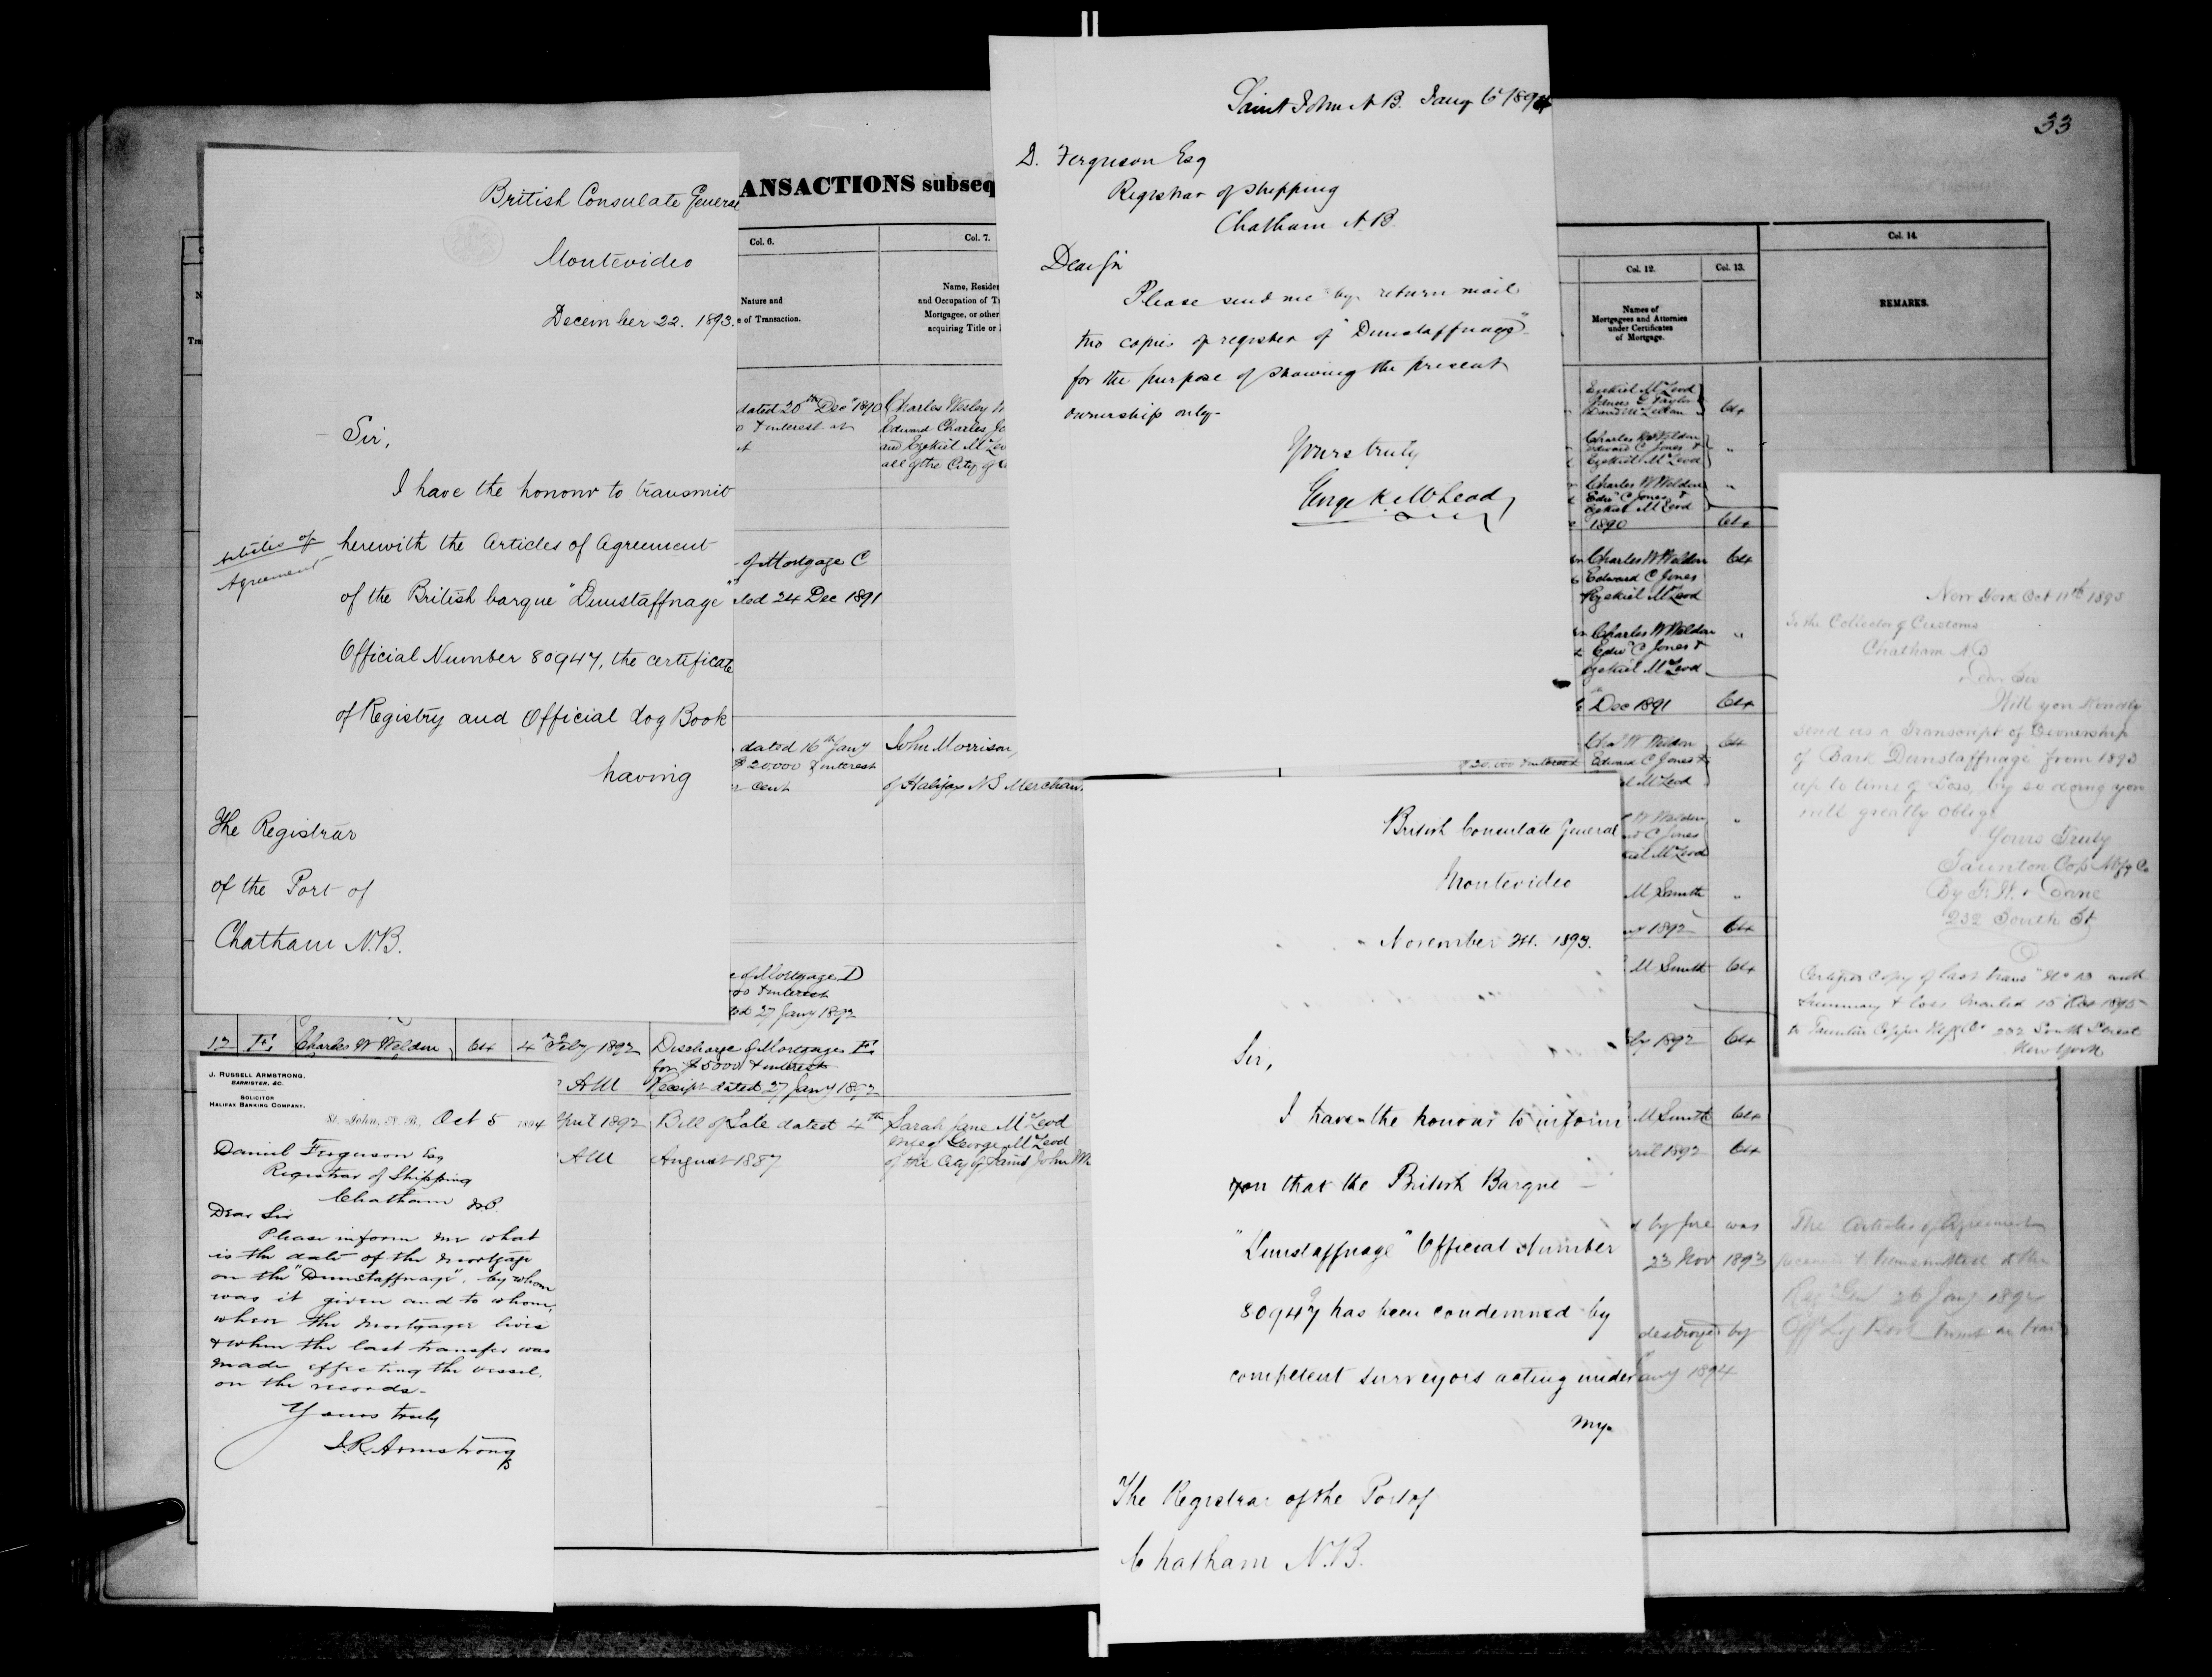 33
ANSACTIONS subseq
British Consulate General
Montevideo
December 22. 1893.
Sir,
I have the honour to transmit
Articles of
Agreement
herewith the Articles of Agreement
of the British barque "Dunstaffnage"
Official Number 80947, the certificate
of Registry and Official Log Book
having
The Registrar
of the Port of
Chatham N.B.
Saint John N.B. Jany 6 1894
D. Ferguson Esq
Registrar of shipping
Chatham N.B.
Dear Sir
Please send me by return mail
two copies of register of "Dunstaffnage"
for the purpose of showing the present
ownership only.
Yours truly
George K. McLeod
Col. 6.
Nature and
e of Transaction.
Col. 7.
Name, Reside
and Occupation of T
Mortgagee, or other
acquiring Title or
dated 20th Decr 1890
& interest at
Charles Wesley W
Edward Charles Jo
and Ezekiel McLeo
all of the City of
of Mortgage C
ted 24 Dec 1891
dated 16th Jany
$20,000 & interest
cent
John Morrison,
of Halifax N S Merchan
e of Mortgage D
00 & interest
ted 27 Jany 1892
12 E Charles W Weldon 64 4 Feby 1892 Discharge of Mortgage E
for $5000 & interest
AM Receipt dated 27 Jany 1892
April 1892 Bill of Sale dated 4th
AM August 1887
Sarah Jane McLeod
wife of George McLeod
of the City of Saint John
J. RUSSELL ARMSTRONG,
BARRISTER, &C.
SOLICITOR
HALIFAX BANKING COMPANY.
St. John, N.B., Oct 5 1894
Daniel Ferguson Esq
Registrar of Shipping
Chatham N.B.
Dear Sir
Please inform me what
is the date of the mortgage
on the "Dunstaffnage", by whom
was it given and to whom,
where the mortgagee lives
& when the last transfer was
made effecting the vessel.
on the records.
Yours truly
J.R. Armstrong
Col. 12.
Names of
Mortgagees and Attornies
under Certificates
of Mortgage.
Col. 13.
Col. 14.
REMARKS.
Ezekiel McLeod
James G Taylor
64
Charles W Weldon
Edward C Jones &
Ezekiel McLeod
"
Charles W Weldon
Edwd C Jones &
Ezekiel McLeod
"
1890 64
Charles W Weldon 64
Edward C Jones
Ezekiel McLeod
Charles W Weldon "
Edwd C Jones &
Ezekiel McLeod
Dec 1891 64
Chas W Weldon 64
$20.000 & interest Edward C Jones &
McLeod
W Weldon "
C Jones
McLeod
M Smith "
1892 64
M Smith 64
1892 64
M Smith 64
ril 1892 64
by fire was
23 Nov 1893
destroyed by
any 1894
The Articles of Agreement
received & transmitted to the
Reg Genl 26 Jany 1894
British Consulate General
Montevideo
November 24. 1893.
Sir,
I have the honour to inform
you that the British Barque
"Dunstaffnage" Official Number
80947 has been condemned by
competent surveyors acting under
my
The Registrar of the Port of
Chatham N.B.
New York Oct 11th 1895
To the Collector of Customs
Chatham N.B
Dear Sir
Will you kindly
send us a Transcript of Ownership
of Bark Dunstaffnage from 1893
up to time of Loss, by so doing you
will greatly oblige
Yours Truly
Taunton Cop Mfg Co
232 South St
Certified copy of last trans and
Summary & loss mailed 15 1895
to Taunton Copper Mfg Co 232 South Street
New York